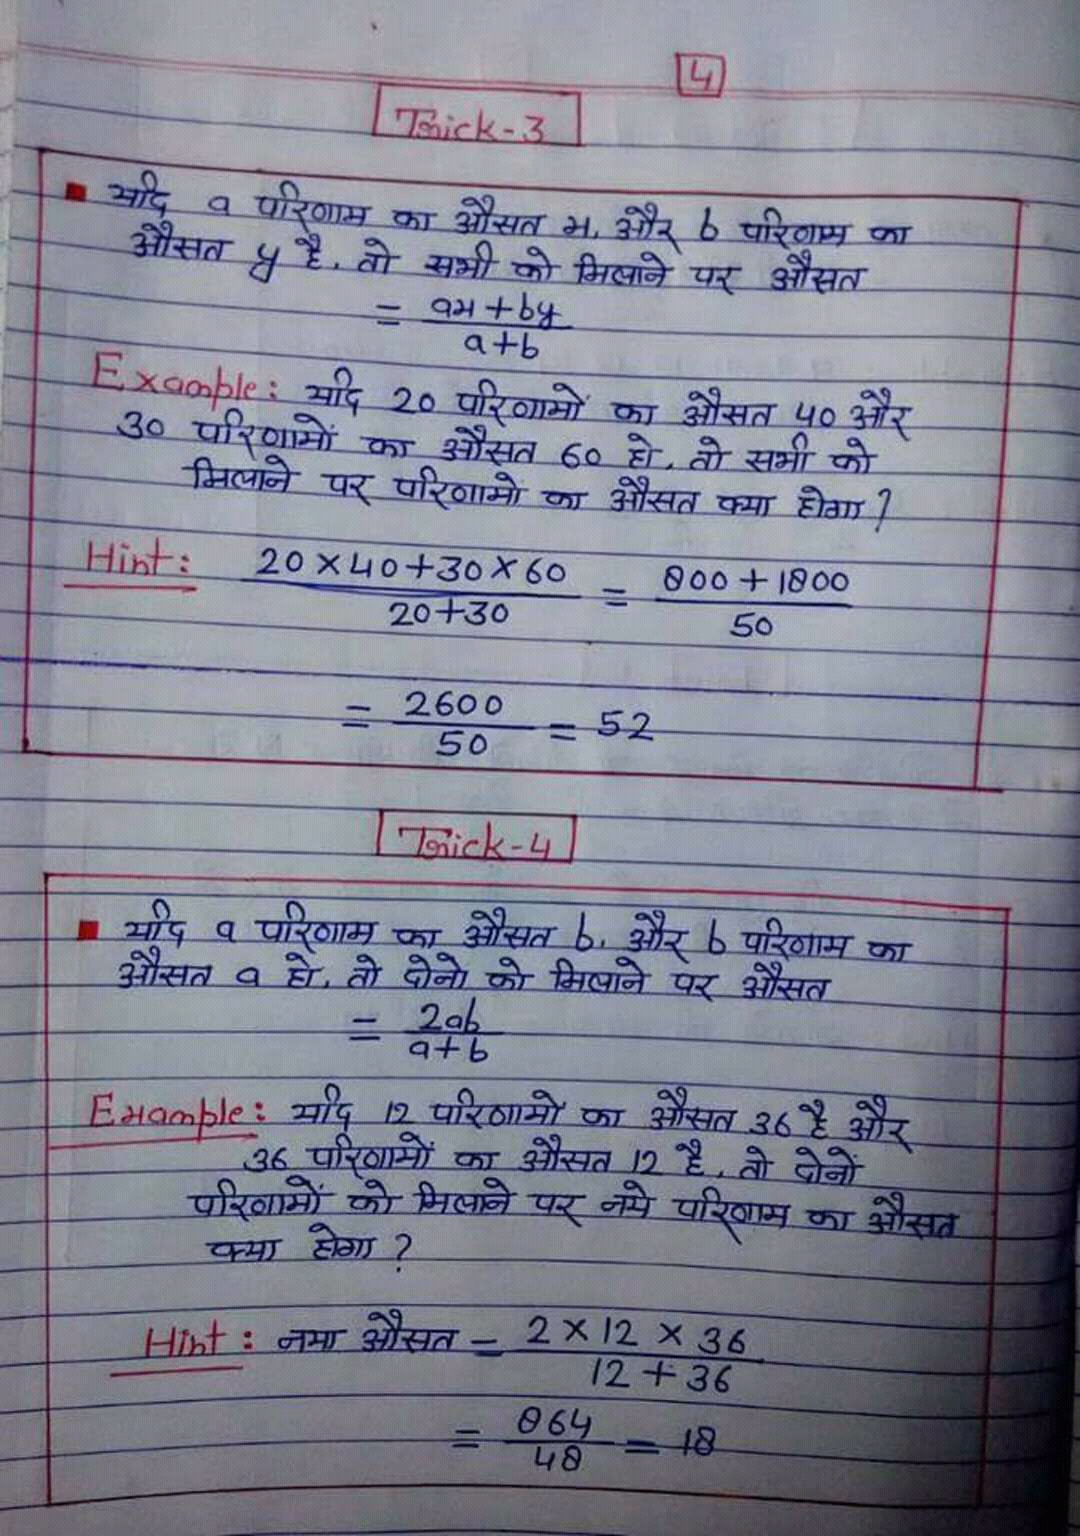 4
Trick-3
यदि a परिणाम का औसत x, और b परिणाम का
औसत y है, तो सभी को मिलाने पर औसत
= ax+by
a+b
Example: यदि 20 परिणामों का औसत 40 और
30 परिणामों का औसत 60 हो, तो सभी को
मिलाने पर परिणामों का औसत क्या होगा?
Hint: 20×40+30×60 = 800+1800
20+30 50
= 2600 = 52
50
Trick-4
यदि a परिणाम का औसत b, और b परिणाम का
औसत a हो, तो दोनो को मिलाने पर औसत
= 2ab
a+b
Example: यदि 12 परिणामों का औसत 36 है और
36 परिणामों का औसत 12 है, तो दोनों
परिणामों को मिलाने पर नये परिणाम का औसत
क्या होगा?
Hint: नया औसत = 2×12×36
12+36
= 864 = 18
48